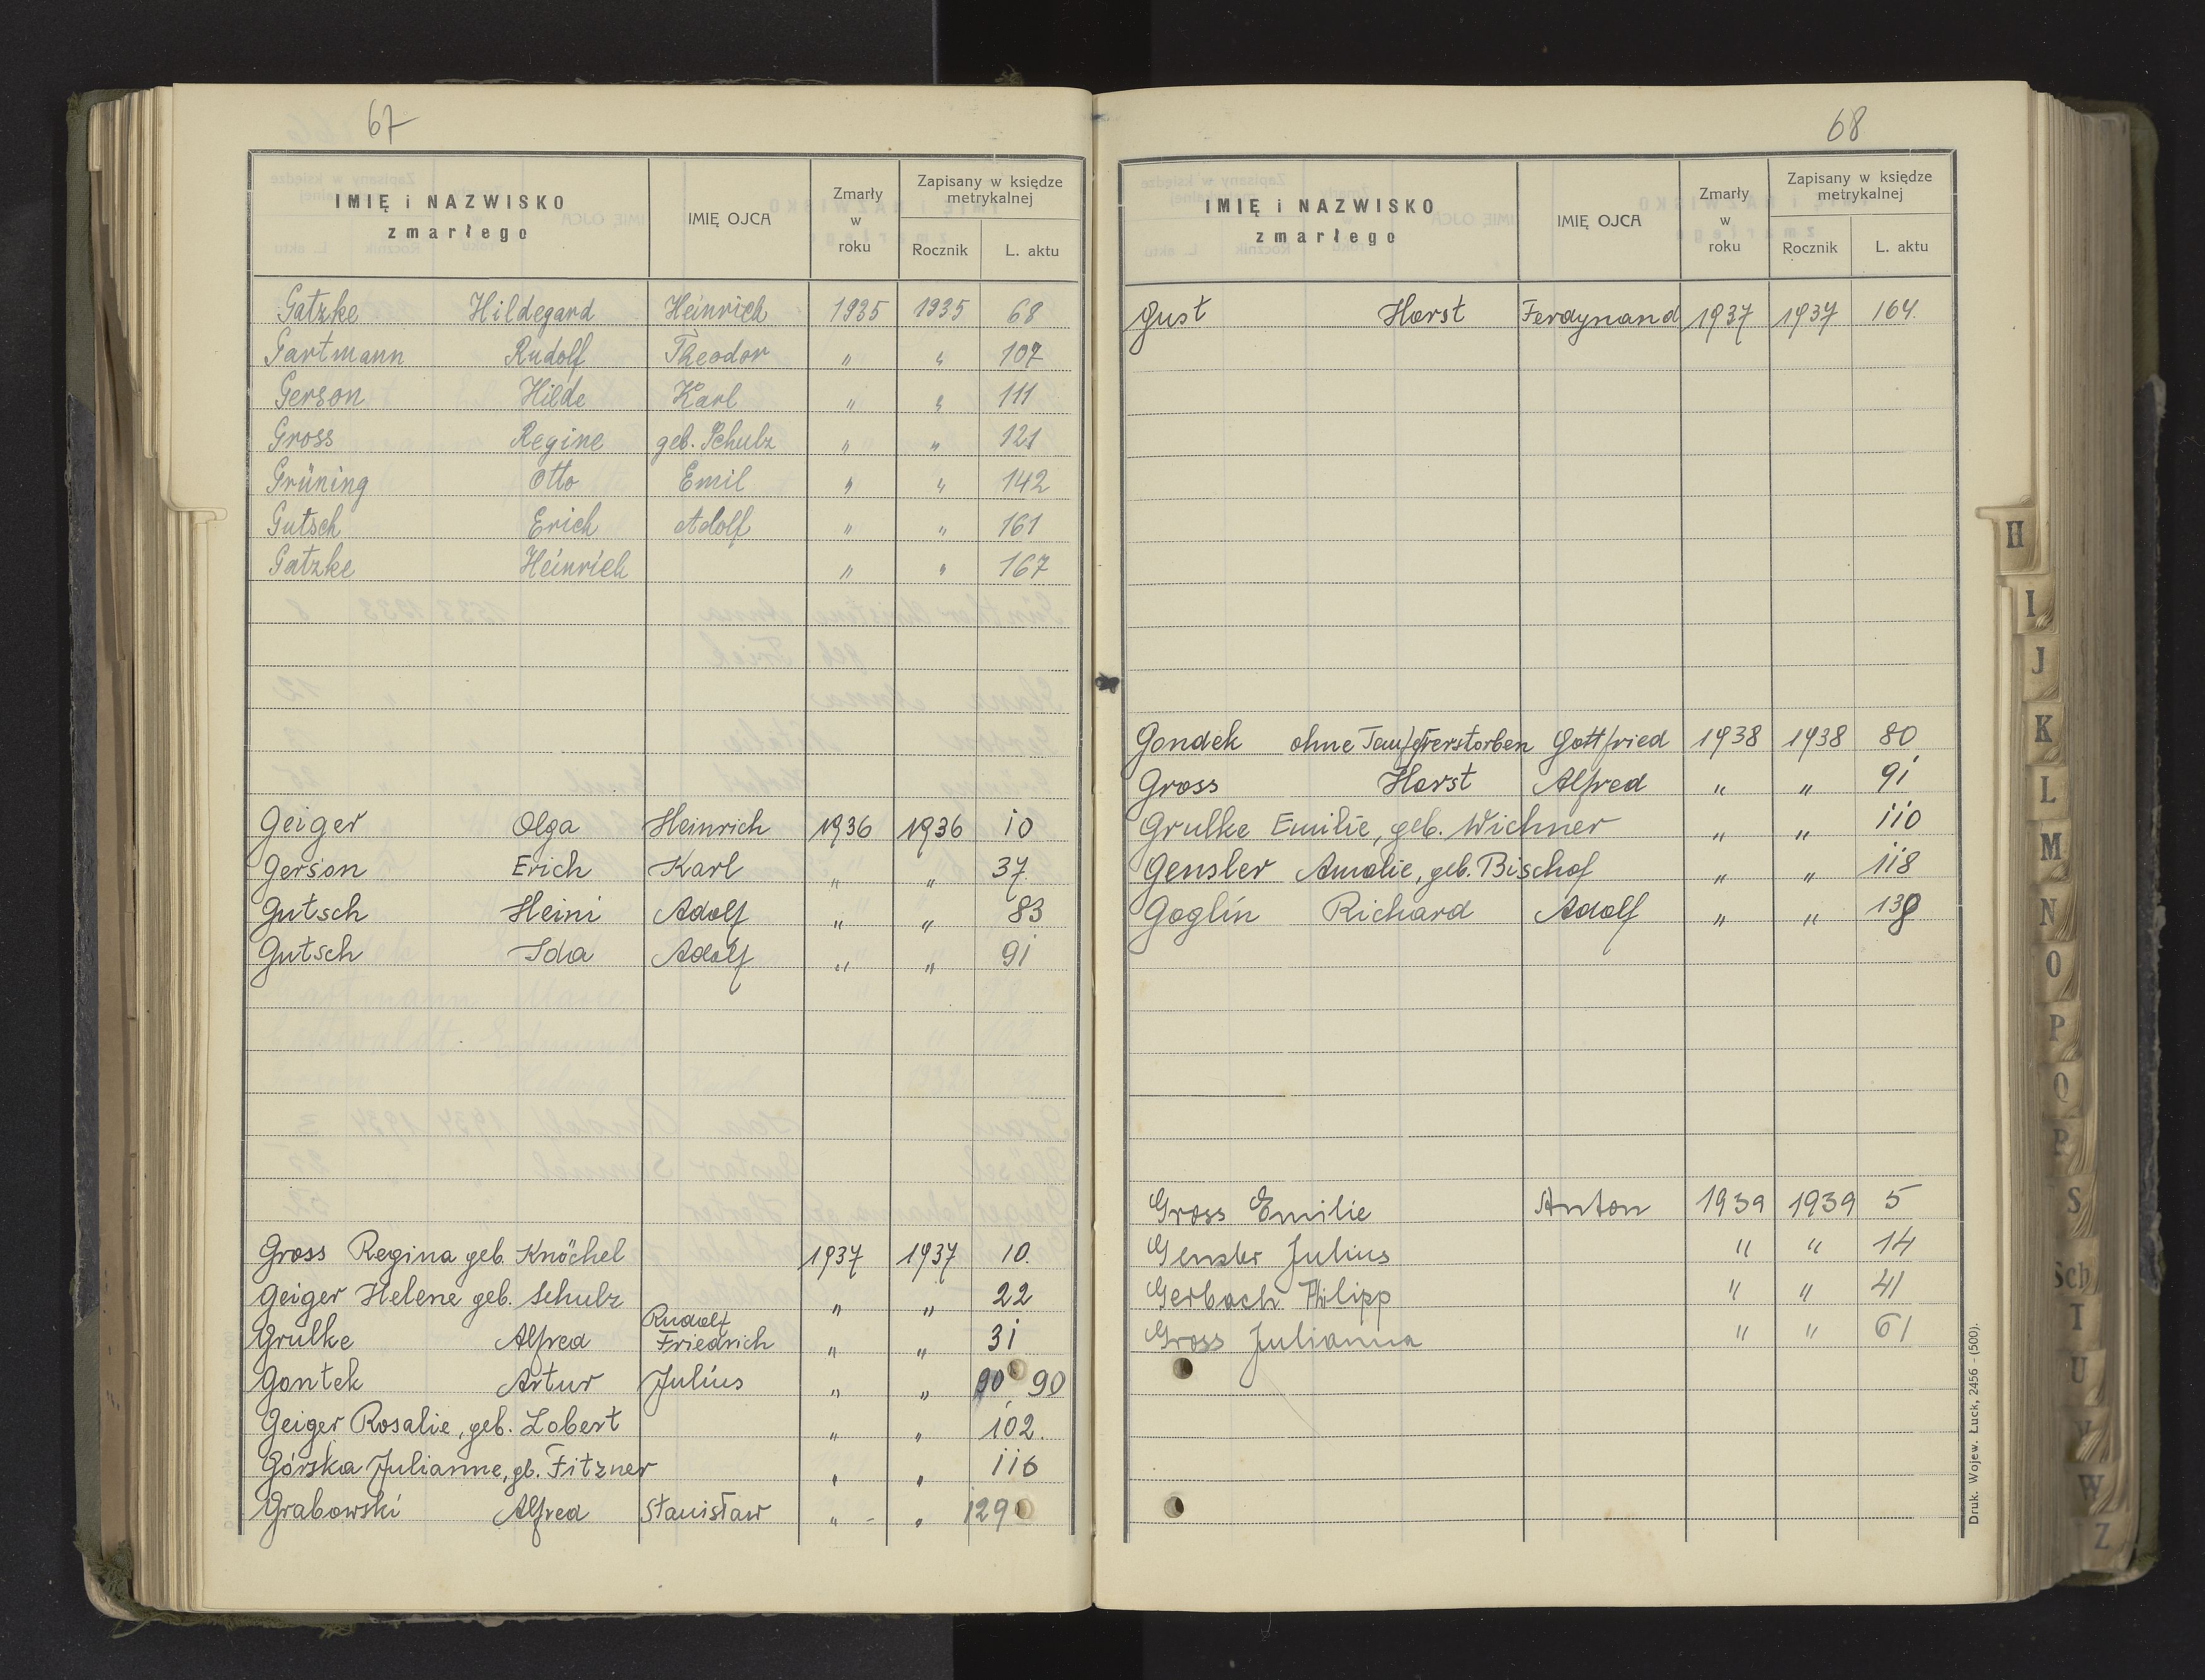 67
IMIĘ i NAZWISKO zmarłego IMIĘ OJCA Zmarły w roku Zapisany w księdze metrykalnej Rocznik L. aktu
Gatzke Hildegard Heinrich 1935 1935 68
Gartmann Rudolf Theodor " " 107
Gerson Hilde Karl " " 111
Gross Regine geb. Schulz " " 121
Grüning Otto Emil " " 142
Gutsch Erich Adolf " " 161
Gatzke Heinrich " " 167
Geiger Olga Heinrich 1936 1936 10
Gerson Erich Karl " " 37
Gutsch Heini Adolf " " 83
Gutsch Ida Adolf " " 91
Gross Regina geb. Knöchel 1937 1937 10.
Geiger Helene geb. Schulz " " 22
Grulke Alfred Rudolf Friedrich " " 31
Gontek Artur Julius " " 90 90
Geiger Rosalie, geb. Lobert " " 102.
Górska Julianne, gb. Fitzner " " 116
Grabowski Alfred Stanisław " - " 129
68
IMIĘ i NAZWISKO zmarłego IMIĘ OJCA Zmarły w roku Zapisany w księdze metrykalnej Rocznik L. aktu
Gust Horst Ferdynand 1937 1937 164.
Gondek ohne Taufe verstorben Gottfried 1938 1938 80
Gross Horst Alfred " " 91
Grulke Emilie, geb. Wichner " " 110
Gensler Amalie, geb. Bischof " " 118
Goglin Richard Adolf " "
Gross Emilie Anton 1939 1939 5
Gensler Julius " " 14
Gerbach Philipp " " 41
Gross Julianna " " 61
Druk. Wojew. Łuck, 2456 - (500).
H
I
J
K
L
M
N
O
P
Q
R
S
Sch
T
U
V
W
Z